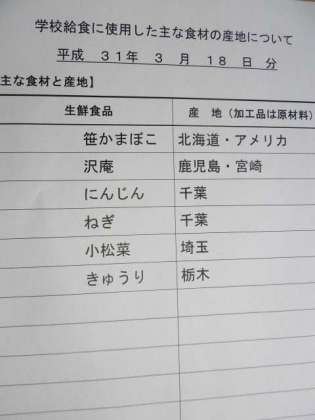 学校給食に使用した主な食材の産地について
平成 31年 3 月 18 日 分
主な食材と産地】
生鮮食品 産 地（加工品は原材料）
笹かまぼこ 北海道・アメリカ
沢庵 鹿児島・宮崎
にんじん 千葉
ねぎ 千葉
小松菜 埼玉
きゅうり 栃木